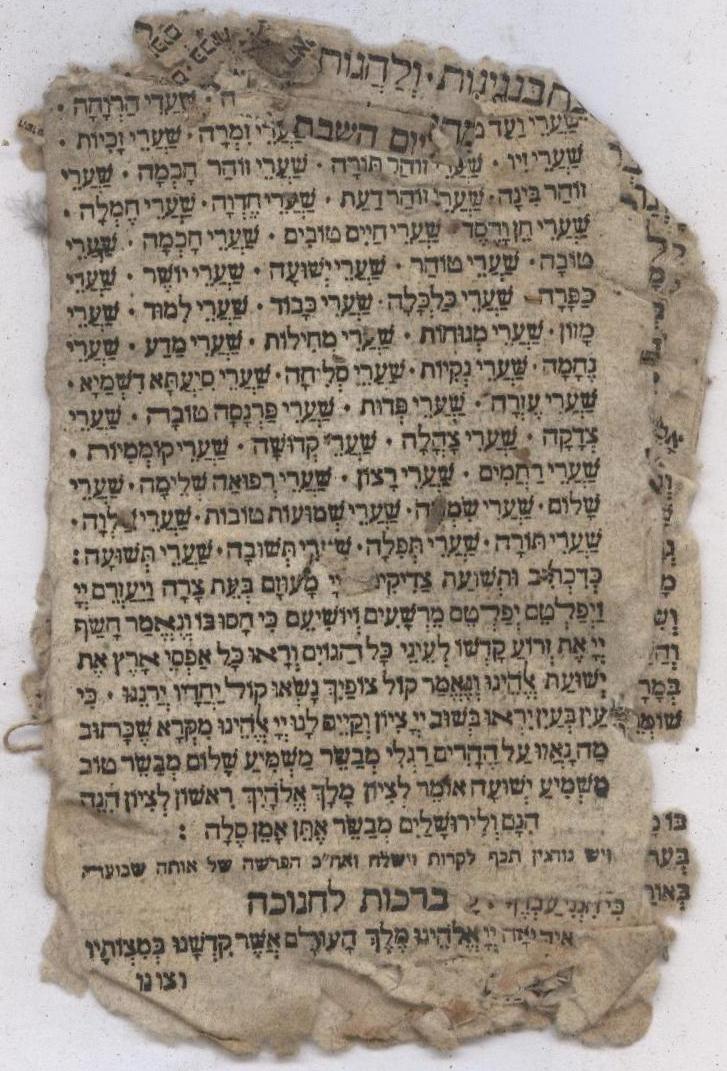 בנגינות · ולהגות
ה · שַׁעֲרֵי הַרְוָחָה ·
שַׁעֲרֵי וַעַד יום השבת שַׁעֲרֵי זִמְרָה · שַׁעֲרֵי זָכִיּוֹת
שַׁעֲרֵי זִיו · שַׁעֲרֵי זוֹהַר תּוֹרָה · שַׁעֲרֵי זוֹהַר חָכְמָה · שַׁעֲרֵי
זוֹהַר בִּינָה · שַׁעֲרֵי זוֹהַר דַּעַת · שַׁעֲרֵי חֶדְוָה · שַׁעֲרֵי חֶמְלָה ·
שַׁעֲרֵי חֵן וָחֶסֶד · שַׁעֲרֵי חַיִּים טוֹבִים · שַׁעֲרֵי חָכְמָה · שַׁעֲרֵי
טוֹבָה · שַׁעֲרֵי טוֹהַר · שַׁעֲרֵי יְשׁוּעָה · שַׁעֲרֵי יוֹשֶׁר · שַׁעֲרֵי
כַּפָּרָה · שַׁעֲרֵי כַּלְכָּלָה · שַׁעֲרֵי כָּבוֹד · שַׁעֲרֵי לִמּוּד · שַׁעֲרֵי
מָזוֹן · שַׁעֲרֵי מְנוּחוֹת · שַׁעֲרֵי מְחִילוֹת · שַׁעֲרֵי מַדַּע · שַׁעֲרֵי
נֶחָמָה · שַׁעֲרֵי נְקִיּוּת · שַׁעֲרֵי סְלִיחָה · שַׁעֲרֵי סִיַּעְתָּא דִשְׁמַיָּא ·
שַׁעֲרֵי עֶזְרָה · שַׁעֲרֵי פְּדוּת · שַׁעֲרֵי פַּרְנָסָה טוֹבָה · שַׁעֲרֵי
צְדָקָה · שַׁעֲרֵי צָהֳלָה · שַׁעֲרֵי קְדוּשָּׁה · שַׁעֲרֵי קוֹמְמִיּוּת ·
שַׁעֲרֵי רַחֲמִים · שַׁעֲרֵי רָצוֹן · שַׁעֲרֵי רְפוּאָה שְׁלֵימָה · שַׁעֲרֵי
שָׁלוֹם · שַׁעֲרֵי שִׂמְחָה · שַׁעֲרֵי שְׁמוּעוֹת טוֹבוֹת · שַׁעֲרֵי שַׁלְוָה ·
שַׁעֲרֵי תּוֹרָה · שַׁעֲרֵי תְּפִלָּה · שַׁעֲרֵי תְּשׁוּבָה · שַׁעֲרֵי תְּשׁוּעָה :
כְּדִכְתִיב וּתְשׁוּעַת צַדִּיקִים יְיָ מָעוּזָּם בְּעֵת צָרָה וַיַּעְזְרֵם יְיָ
וַיְפַלְּטֵם יְפַלְּטֵם מֵרְשָׁעִים וְיוֹשִׁיעֵם כִּי חָסוּ בוֹ וְנֶאֱמַר חָשַׂף
יְיָ אֶת זְרוֹעַ קָדְשׁוֹ לְעֵינֵי כָּל הַגּוֹיִם וְרָאוּ כָּל אַפְסֵי אָרֶץ אֵת
יְשׁוּעַת אֱלֹהֵינוּ וְנֶאֱמַר קוֹל צוֹפַיִךְ נָשְׂאוּ קוֹל יַחְדָּו יְרַנֵּנוּ · כִּי
עַיִן בְּעַיִן יִרְאוּ בְּשׁוּב יְיָ צִיּוֹן וְקַיֵּים לָנוּ יְיָ אֱלֹהֵינוּ מִקְרָא שֶׁכָּתוּב
מַה נָּאווּ עַל הֶהָרִים רַגְלֵי מְבַשֵּׂר מַשְׁמִיעַ שָׁלוֹם מְבַשֵּׂר טוֹב
מַשְׁמִיעַ יְשׁוּעָה אוֹמֵר לְצִיּוֹן מָלַךְ אֱלֹהָיִךְ רִאשׁוֹן לְצִיּוֹן הִנֵּה
הִנָּם וְלִירוּשָׁלַיִם מְבַשֵּׂר אֶתֵּן אָמֵן סֶלָה :
ויש נוהגין תכף לקרות וישלח ואח״כ הפרשה של אותה שבוע
ברכות לחנוכה
יְיָ אֱלֹהֵינוּ מֶלֶךְ הָעוֹלָם אֲשֶׁר קִדְּשָׁנוּ בְּמִצְוֹתָיו
וצונו